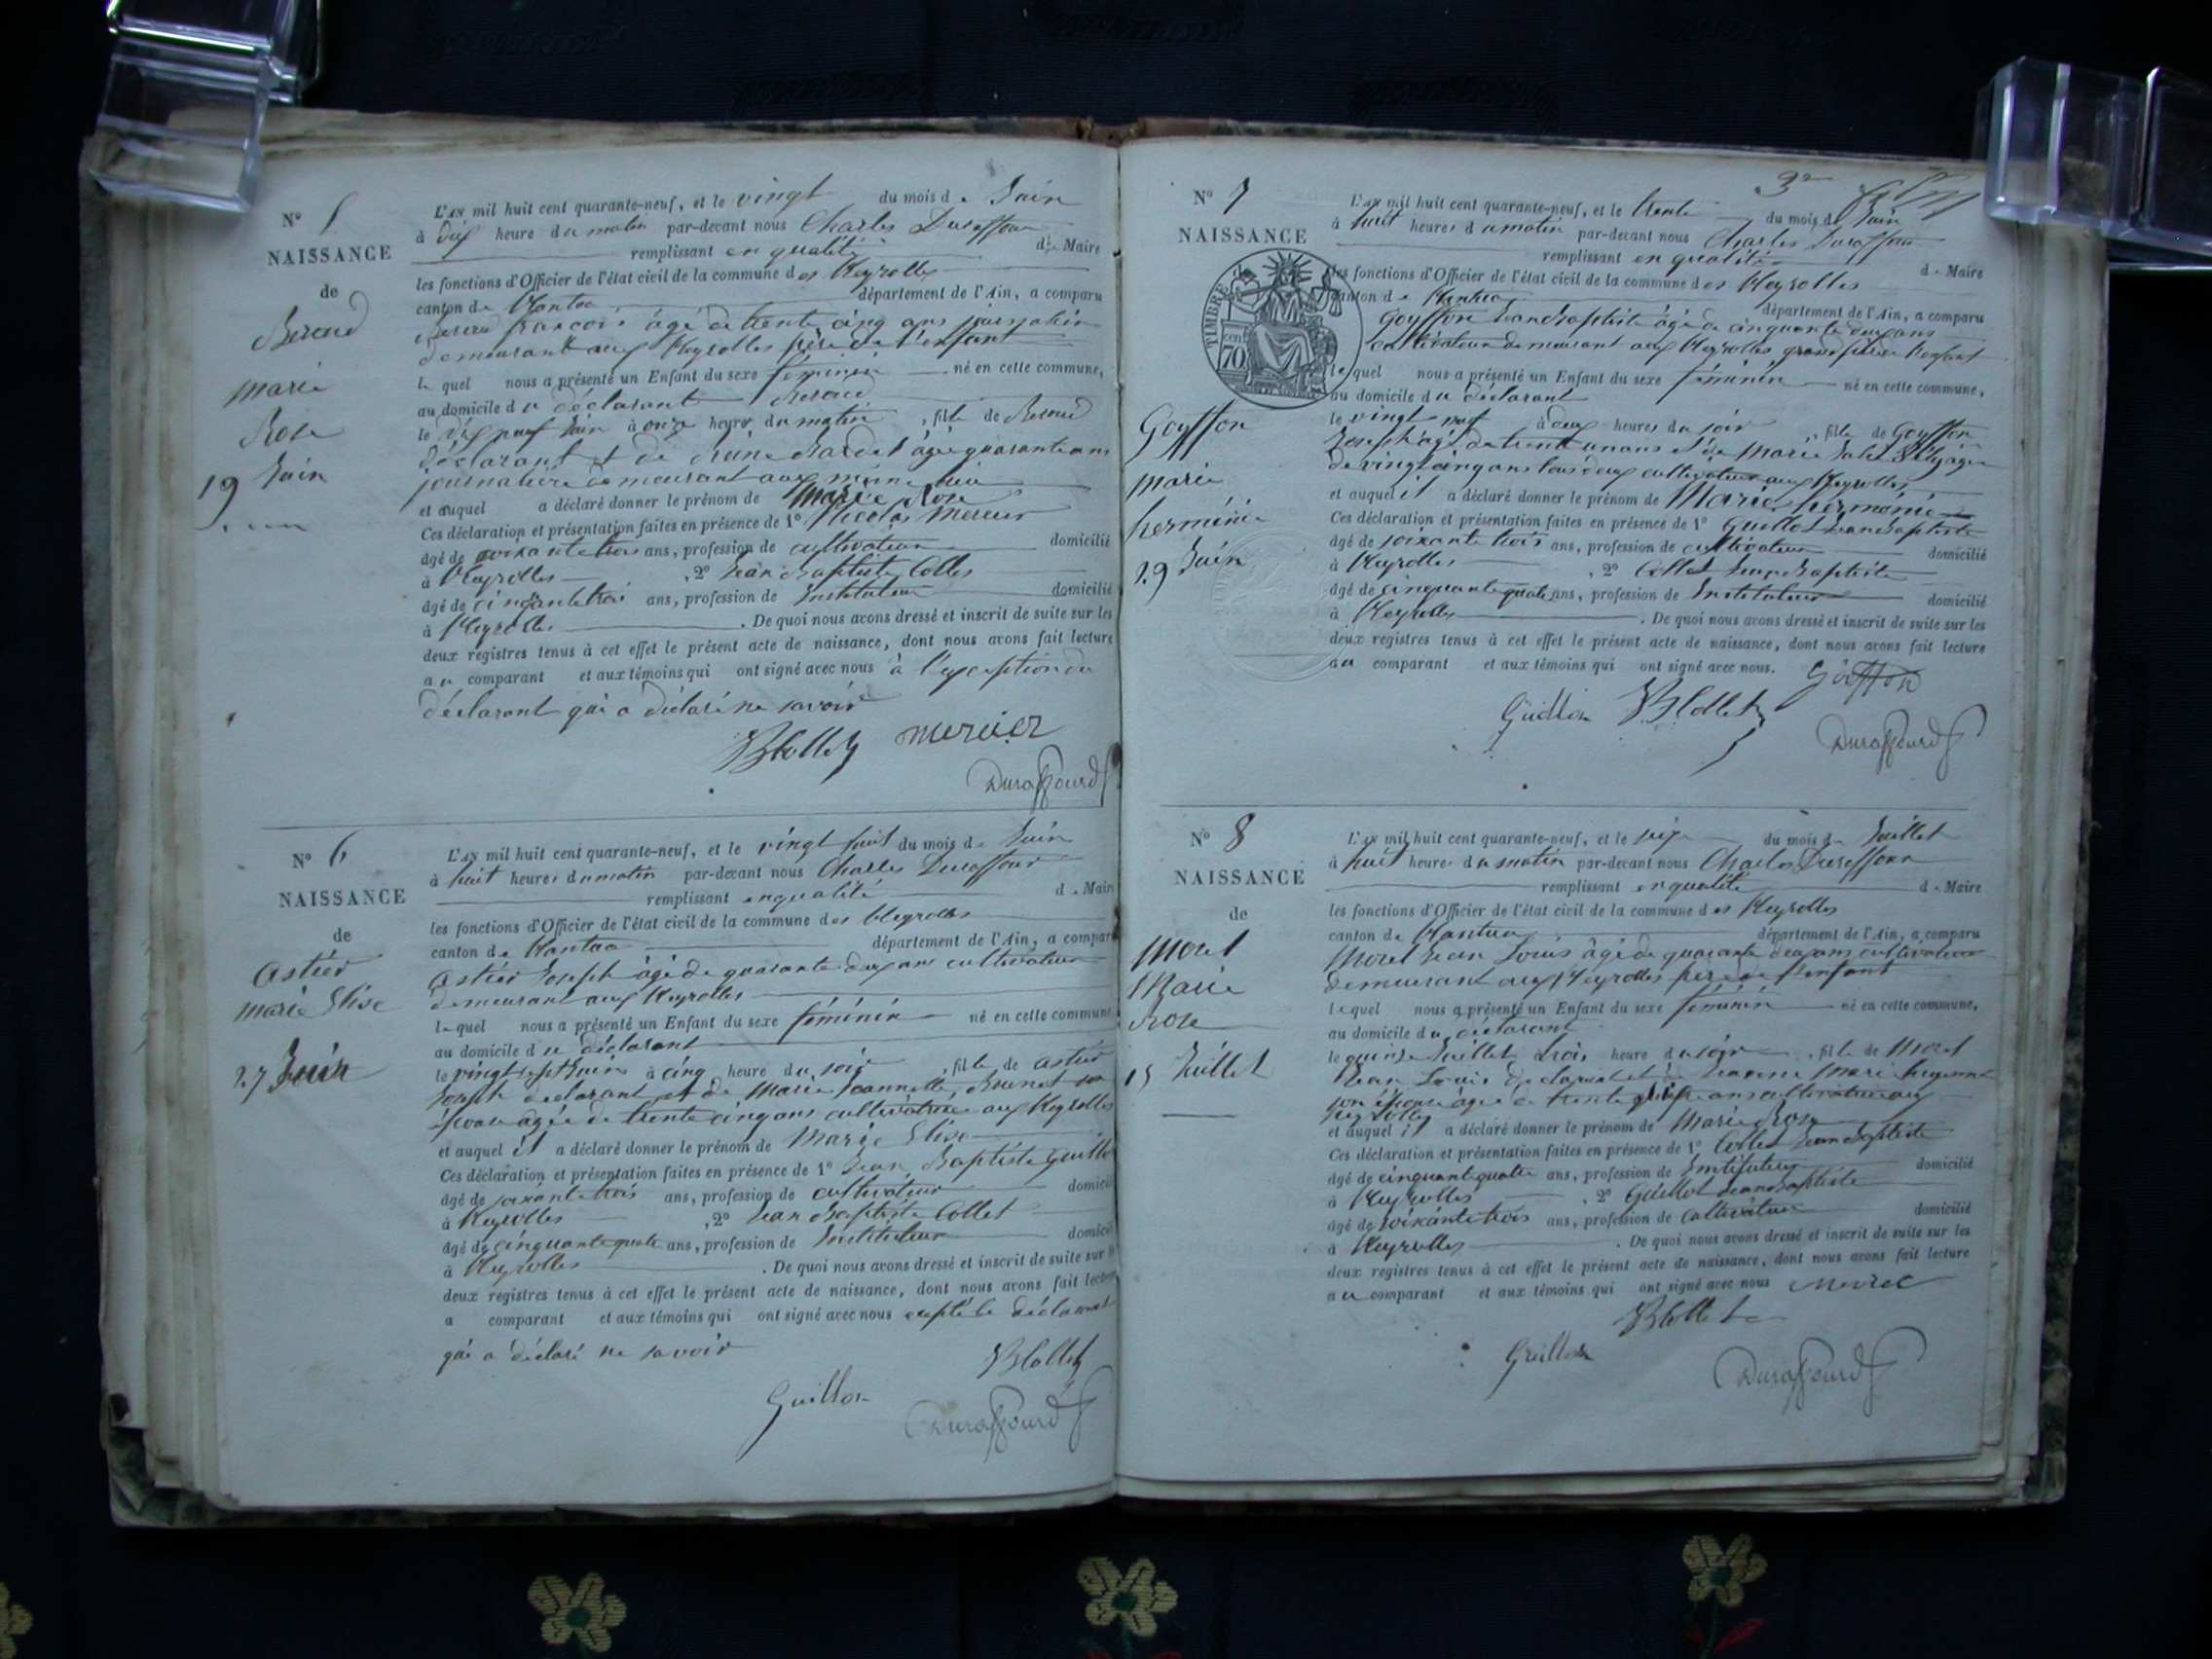 N° 5
NAISSANCE
de
Beroud
marie
Rose
19 Juin
L'AN mil huit cent quarante-neuf, et le vingt du mois de Juin
à dix heure du matin par-devant nous Charles Duraffour
remplissant en qualité de Maire
les fonctions d'Officier de l'état civil de la commune des Neyrolles
canton de Nantua département de l'Ain, a comparu
Beroud francois âgé de trente cinq ans journalier
demeurant aux Neyrolles père de l'enfant
le quel nous a présenté un Enfant du sexe feminin né en cette commune,
au domicile du déclarant Beroud
le dix neuf Juin à onze heures du matin, fille de Beroud
déclarant et de Reine âgée quarante ans
journalière demeurant aux même lieu
et auquel a déclaré donner le prénom de Marie Rose
Ces déclaration et présentation faites en présence de 1° Nicolas Mercier
âgé de soixante trois ans, profession de cultivateur domicilié
à Neyrolles, 2° Jean Baptiste Collet
âgé de cinquante trois ans, profession de Instituteur domicilié
à Neyrolles. De quoi nous avons dressé et inscrit de suite sur les
deux registres tenus à cet effet le présent acte de naissance, dont nous avons fait lecture
au comparant et aux témoins qui ont signé avec nous à l'exception du
déclarant qui a déclaré ne savoir
JB Collet mercier
Duraffourd
N° 6
NAISSANCE
de
Astier
marie Elise
27 Juin
L'AN mil huit cent quarante-neuf, et le vingt huit du mois de Juin
à huit heures du matin par-devant nous Charles Duraffour
remplissant en qualité de Maire
les fonctions d'Officier de l'état civil de la commune des Neyrolles
canton de Nantua département de l'Ain, a comparu
Astier Joseph âgé de quarante deux ans cultivateur
demeurant aux Neyrolles
lequel nous a présenté un Enfant du sexe féminin né en cette commune
au domicile du déclarant
le vingt sept Juin à cinq heure du soir, fille de Astier
Joseph déclarant et de Marie Jeannette Brunet son
épouse agée de trente cinq ans cultivatrice aux Neyrolles
et auquel il a déclaré donner le prénom de Marie Elise
Ces déclaration et présentation faites en présence de 1° Jean Baptiste Guillo
âgé de soixante trois ans, profession de cultivateur domici
à Neyrolles, 2° Jean Baptiste Collet
âgé de cinquante quatre ans, profession de Instituteur domici
à Neyrolles. De quoi nous avons dressé et inscrit de suite sur
deux registres tenus à cet effet le présent acte de naissance, dont nous avons fait lecture
a comparant et aux témoins qui ont signé avec nous excepté le déclarant
qui a déclaré ne savoir
JB Collet
Guillot
Duraffourd
3e
N° 7
NAISSANCE
TIMBRE
70
Goyffon
marie
herminie
29 Juin
L'AN mil huit cent quarante-neuf, et le trente du mois de Juin
à huit heures du matin par-devant nous Charles Duraffour
remplissant en qualité de Maire
les fonctions d'Officier de l'état civil de la commune des Neyrolles
canton de Nantua département de l'Ain, a comparu
Goyffon Jean Baptiste âgé de cinquante deux ans
cultivateur demeurant aux Neyrolles grand père de l'enfant
lequel nous a présenté un Enfant du sexe féminin né en cette commune,
au domicile du déclarant
le vingt neuf à deux heures du soir, fille de Goyffon
Joseph âgé de trente un ans et de Marie âgée
de vingt cinq ans tous deux cultivateurs aux Neyrolles
et auquel il a déclaré donner le prénom de Marie herminie
Ces déclaration et présentation faites en présence de 1° Guillot Jean Baptiste
âgé de soixante trois ans, profession de cultivateur domicilié
à Neyrolles, 2° Collet Jean Baptiste
âgé de cinquante quatre ans, profession de Instituteur domicilié
à Neyrolles. De quoi nous avons dressé et inscrit de suite sur les
deux registres tenus à cet effet le présent acte de naissance, dont nous avons fait lecture
au comparant et aux témoins qui ont signé avec nous. Goiffon
Guillot JB Collet
Duraffourd
N° 8
NAISSANCE
de
Morel
Marie
Rose
15 Juillet
L'AN mil huit cent quarante-neuf, et le seize du mois de Juillet
à huit heures du matin par-devant nous Charles Duraffour
remplissant en qualité de Maire
les fonctions d'Officier de l'état civil de la commune des Neyrolles
canton de Nantua département de l'Ain, a comparu
Morel Jean Louis âgé de quarante deux ans cultivateur
demeurant aux Neyrolles père de l'enfant
lequel nous a présenté un Enfant du sexe féminin né en cette commune,
au domicile du déclarant
le quinze Juillet à trois heure du soir, fille de Morel
Jean Louis déclarant et de Jeanne Marie
son épouse âgée de trente ans cultivatrice aux
Neyrolles
et auquel il a déclaré donner le prénom de Marie Rose
Ces déclaration et présentation faites en présence de 1° Collet Jean Baptiste
âgé de cinquante quatre ans, profession de Instituteur domicilié
à Neyrolles, 2° Guillot Jean Baptiste
âgé de soixante trois ans, profession de Cultivateur domicilié
à Neyrolles. De quoi nous avons dressé et inscrit de suite sur les
deux registres tenus à cet effet le présent acte de naissance, dont nous avons fait lecture
au comparant et aux témoins qui ont signé avec nous Morel
JB Collet
Guillot
Duraffourd